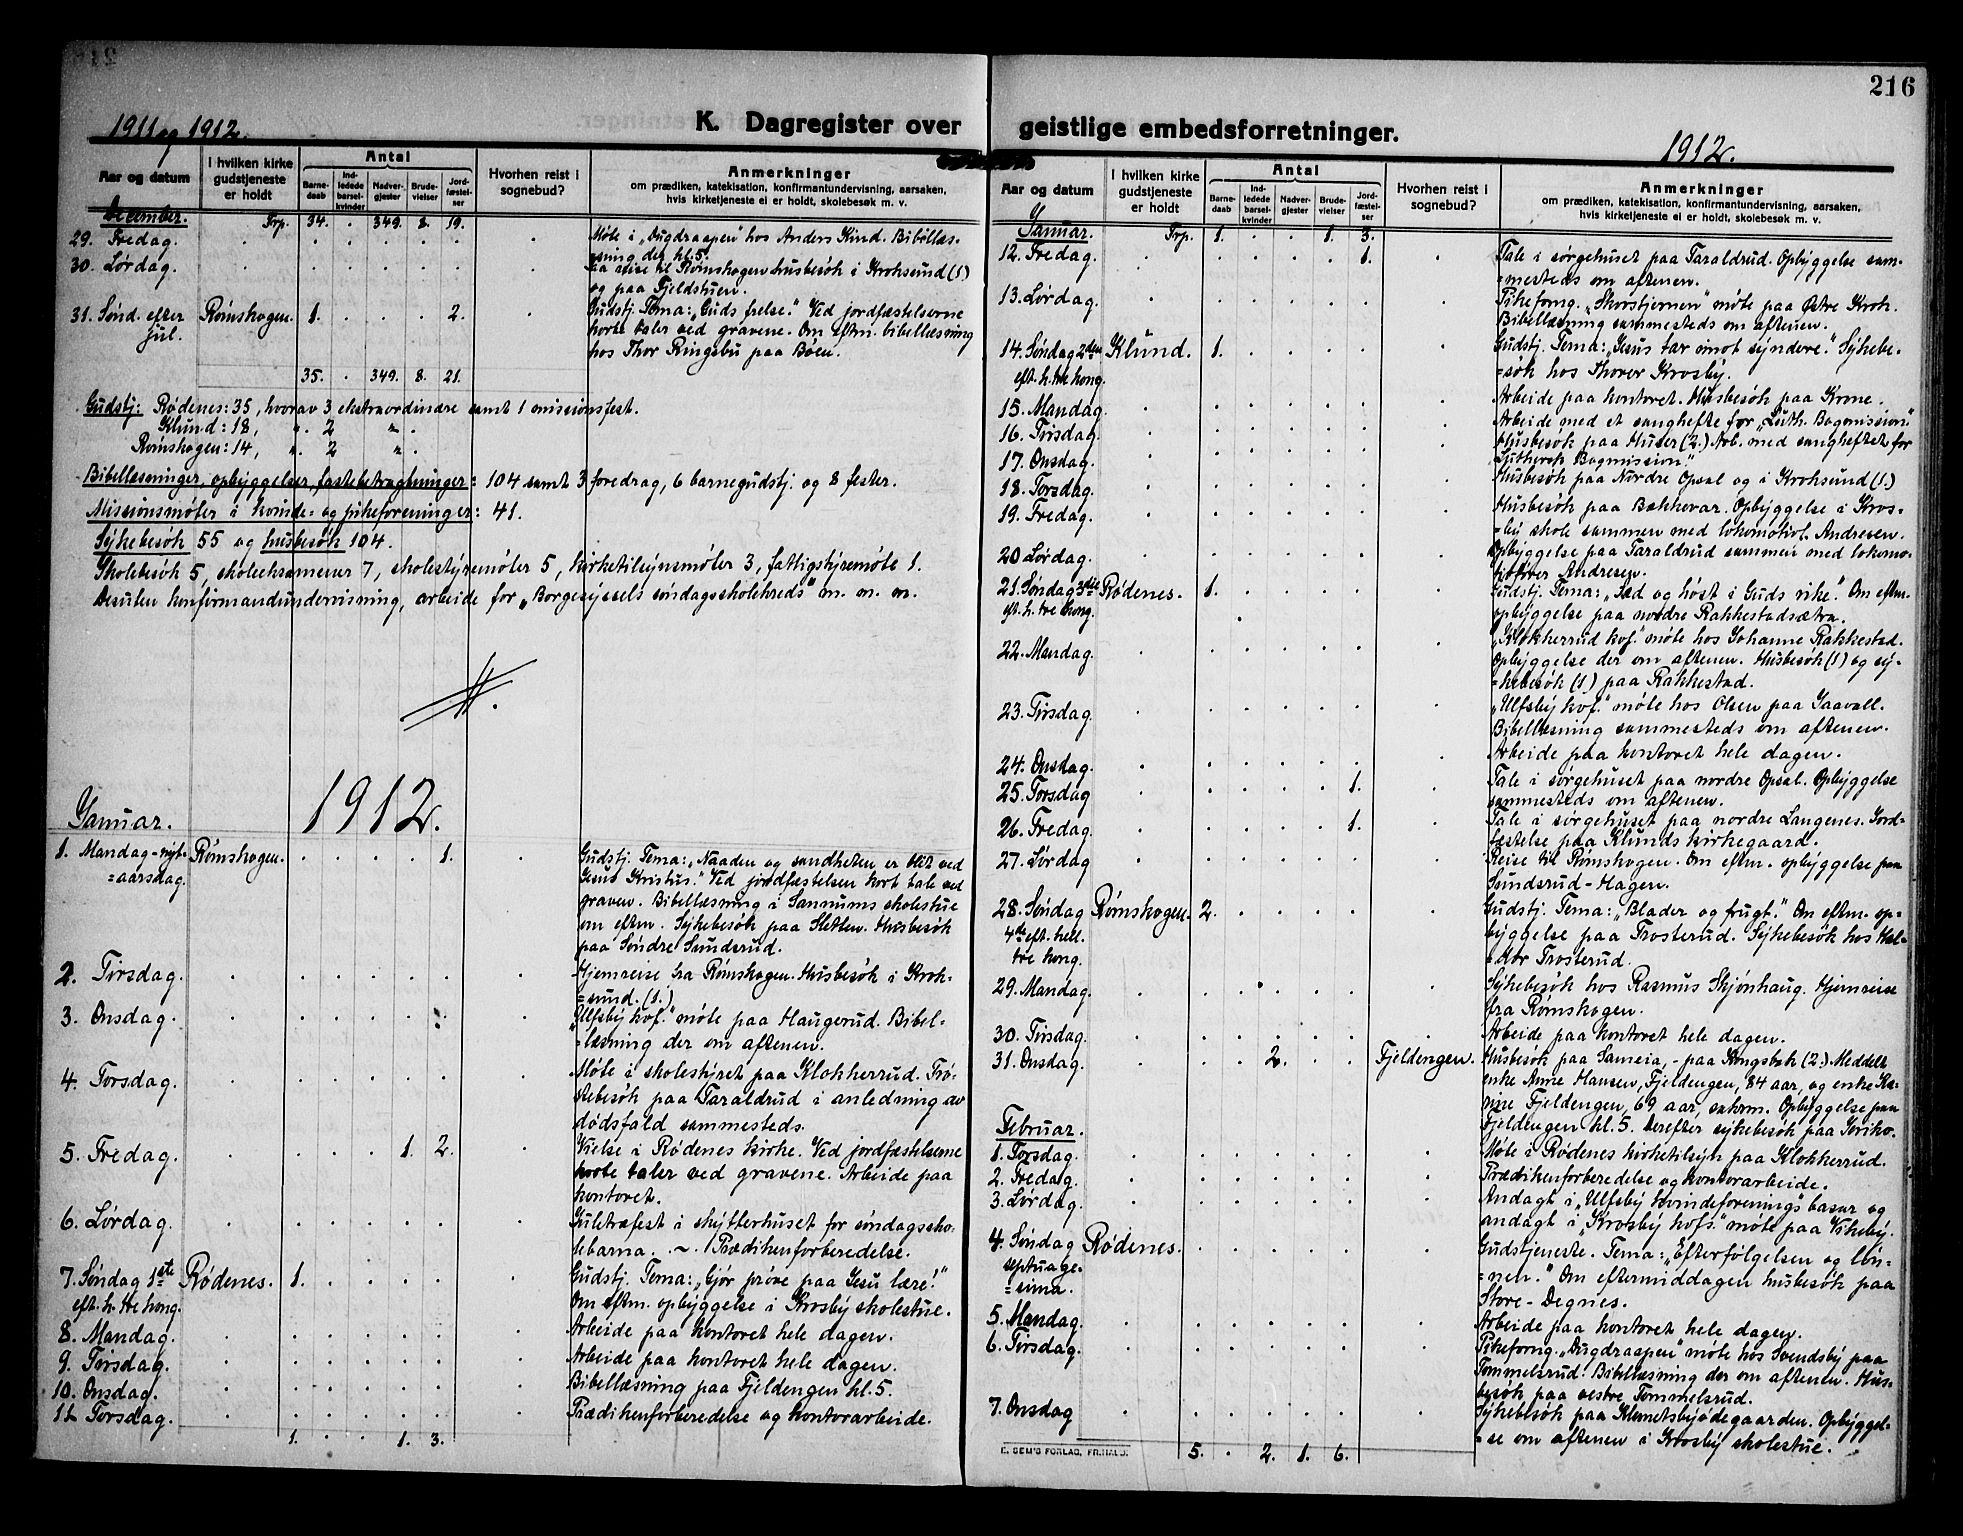 216
1911 og 1912.
K. Dagregister over
Aar og datum
I hvilken kirke gudstjeneste er holdt
Antal
Barne-daab
Ind-ledede barsel-kvinder
Nadver-gjester
Brude-vielser
Jord-fæstel-ser
Hvorhen reist i sognebud?
Anmerkninger
om prædiken, katekisation, konfirmantundervisning, aarsaken,
hvis kirketjeneste ei er holdt, skolebesøk m. v.
December. Trp. 34. . 349. 8. 19.
29. Fredag. Møte i „Dugdraapen" hos Anders Kind. Bibellæs-
=ning der kl. 5.
30. Lørdag. Paa reise til Rømskogen husbesøk i Kroksund (1)
og paa Fjeldstuen.
31. Sønd. efter Rømskogen. 1. 2. Gudstj. Tema: „Guds frelse." Ved jordfæstelserne
jul. korte taler ved gravene. Om eftm. bibellæsning
hos Thor Ringsbu paa Bøen.
35. . 349. 8. 21.
Gudstj: Rødenes: 35, hvorav 3 ekstraordinære samt 1 missionsfest.
Klund: 18, „. 2 „.
Rømskogen: 14, „. 2 „.
Bibellæsninger, opbyggelser, fastebetragtninger: 104 samt 3 foredrag, 6 barnegudstj. og 8 fester.
Missionsmøter i kvinde= og pikeforeninger: 41.
Sykebesøk 55 og husbesøk 104.
Skolebesøk 5, skoleeksamener 7, skolestyremøter 5, kirketilsynsmøter 3, fattigstyremøte 1.
Desuten konfirmandundervisning, arbeide for „Borgesyssels søndagsskolekreds" m. m. m.
Januar. 1912.
1. Mandag - nyt- Rømskogen. 1. Gudstj. Tema: „Naaden og sandheten er blit ved
=aarsdag. Jesus Kristus." Ved jordfæstelsen kort tale ved
graven. Bibellæsning i Sannums skolestue
om eftm. Sykebesøk paa Sletten. Husbesøk
paa Søndre Sundsrud.
2. Tirsdag. Hjemreise fra Rømskogen. Husbesøk i Krok-
=sund. (1.)
3. Onsdag. „Ulfsby kof." møte paa Haugerud. Bibel-
=læsning der om aftenen.
4. Torsdag. Møte i skolestyret paa Klokkerrud. Trø-
stebesøk paa Taraldrud i anledning av
dødsfald sammesteds.
5. Fredag. 1. 2. Vielse i Rødenes kirke. Ved jordfæstelserne
korte taler ved gravene. Arbeide paa
kontoret.
6. Lørdag. Juletræfest i skytterhuset for søndagssko-
lebarna. .~. Prædikenforberedelse.
7. Søndag 1ste Rødenes. 1. Gudstj. Tema: „Gjør prøve paa Jesu lære!"
eft. h. tre kong. Om eftm. opbyggelse i Krosby skolestue.
8. Mandag. Arbeide paa kontoret hele dagen.
9. Tirsdag. Arbeide paa kontoret hele dagen.
10. Onsdag. Bibellæsning paa Fjeldengen kl. 5.
11. Torsdag. Prædikenforberedelse og kontorarbeide.
1. 1. 3.
geistlige embedsforretninger.
1912.
Aar og datum
I hvilken kirke gudstjeneste er holdt
Antal
Barne-daab
Ind-ledede barsel-kvinder
Nadver-gjester
Brude-vielser
Jord-fæstel-ser
Hvorhen reist i sognebud?
Anmerkninger
om prædiken, katekisation, konfirmantundervisning, aarsaken,
hvis kirketjeneste ei er holdt, skolebesøk m. v.
Januar. Trp. 1. . . 1. 3.
12. Fredag. 1. Tale i sørgehuset paa Taraldrud. Opbyggelse sam-
=mesteds om aftenen.
13. Lørdag. Pikeforng. „Skovstjernen" møte paa Østre Krok.
Bibellæsning sammesteds om aftenen.
14. Søndag 2den Klund. 1. Gudstj. Tema: „Jesus tar imot syndere." Sykebe-
eft. h. tre kong. =søk hos Thorer Krosby.
15. Mandag. Arbeide paa kontoret. Husbesøk paa Krone.
16. Tirsdag. Arbeide med et sanghefte for „Luth. Bogmission."
17. Onsdag. Husbesøk paa Huser (2.) Arb. med sangheftet for
„Luthersk Bogmission".
18. Torsdag. Husbesøk paa Nordre Opsal og i Kroksund (1.)
19. Fredag. Husbesøk paa Bækkevar. Opbyggelse i Kros-
=by skole sammen med lokomotivf. Andresen.
20 Lørdag. Opbyggelse paa Taraldrud sammen med lokomo-
tivfører Andresen.
21. Søndag 3die Rødenes. 1. Gudstj. Tema: „Sæd og høst i Guds rike." Om eftm.
eft. h. tre kong. opbyggelse paa nordre Rakkestadsætra.
22. Mandag. „Klokkerrud kof." møte hos Johanne Rakkestad.
Opbyggelse der om aftenen. Husbesøk (1) og sy-
=kebesøk (1) paa Rakkestad.
23. Tirsdag. „Ulfsby kof." møte hos Olsen paa Jaavall.
Bibellæsning sammesteds om aftenen.
24. Onsdag. Arbeide paa kontoret hele dagen.
25. Torsdag 1. Tale i sørgehuset paa nordre Opsal. Opbyggelse
sammesteds om aftenen.
26. Fredag 1. Tale i sørgehuset paa nordre Langenes. Jord-
fæstelse paa Klunds kirkegaard.
27. Lørdag Reise til Rømskogen. Om eftm. opbyggelse paa
Sundsrud-Hagen.
28. Søndag Rømskogen. 2. Gudstj. Tema: „Blader og frugt." Om eftm. op-
4de eft. hell. byggelse paa Trosterud. Sykebesøk hos Hal-
tre kong. =vor Trosterud.
29. Mandag. Sykebesøk hos Rasmus Skjønhaug. Hjemreise
fra Rømskogen.
30. Tirsdag. Arbeide paa kontoret hele dagen.
31. Onsdag. 2. Fjeldengen. Husbesøk paa Sameia, - paa Kongsbek (2.) Meddelt
enke Anne Hansen, Fjeldengen, 84 aar, og enke Ka-
rine Fjeldengen, 69 aar, sakrm. Opbyggelse paa
Fjeldengen kl. 5. Derefter sykebesøk paa
Februar.
1. Torsdag. Møte i Rødenes kirketilsyn paa Klokkerrud.
2. Fredag. Prædikenforberedelse og kontorarbeide.
3. Lørdag. Andagt i „Ulfsby kvindeforenings" basar og
andagt i „Krosby kofs." møte paa Vikeby.
4. Søndag Rødenes. Gudstjeneste. Tema: „Efterfølgelsen og løn-
septuage- nen." Om eftermiddagen husbesøk paa
=sima. Store-Degnes.
5. Mandag. Arbeide paa kontoret hele dagen.
6. Tirsdag. Pikeforng. „Dugdraapen" møte hos Svendsby paa
Tommelsrud. Bibellæsning der om aftenen. Hus-
besøk paa vestre Tommelsrud.
7. Onsdag Sykebesøk paa Klemetsbyødegaarden. Opbyggel-
=se om aftenen i Krosby skolestue.
E. SEM'S FORLAG, FR.HALD. 5. . 2. 1. 6.